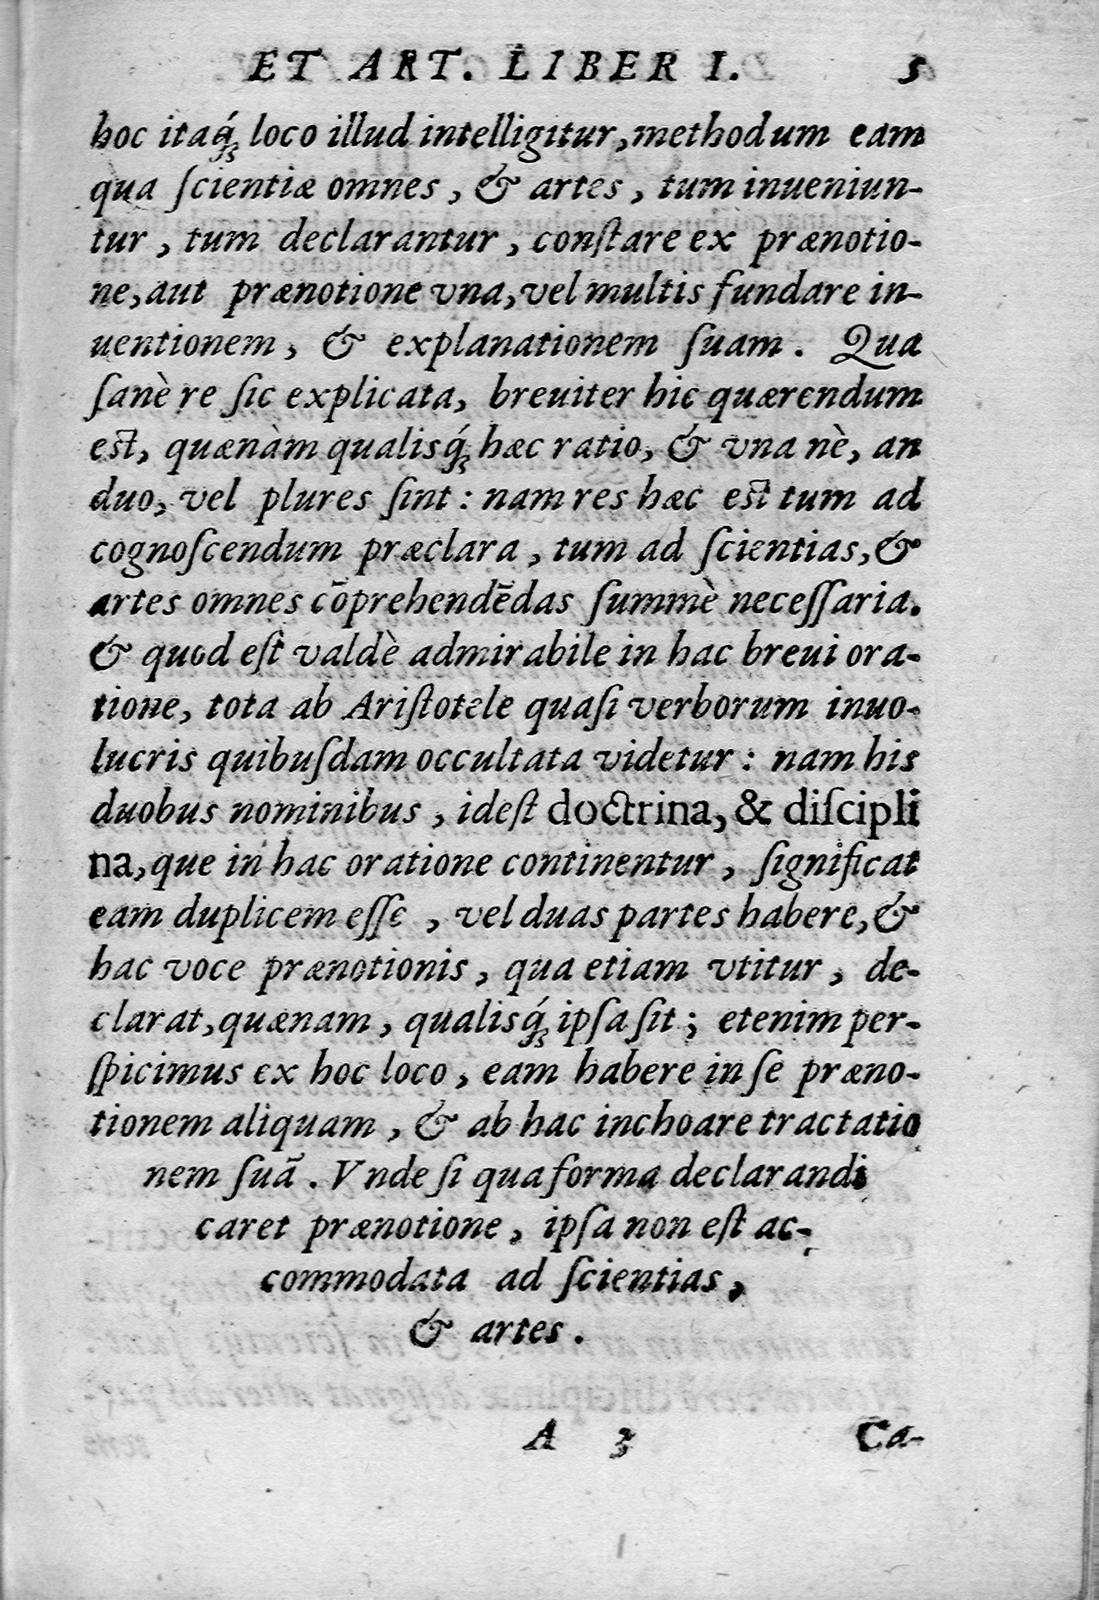 ET ART. LIBER I. 5
hoc itaq́; loco illud intelligitur, methodum eam
qua ſcientiæ omnes, & artes, tum inueniun-
tur, tum declarantur, conſtare ex prænotio-
ne, aut prænotione vna, vel multis fundare in-
uentionem, & explanationem ſuam. Qua
ſanè re ſic explicata, breuiter hic quærendum
est, quænàm qualisq́; hæc ratio, & vna nè, an
duo, vel plures ſint: nam res hæc est tum ad
cognoſcendum præclara, tum ad ſcientias, &
artes omnes cōprehendēdas ſummè neceſſaria.
& quod eſt valdè admirabile in hac breui ora-
tione, tota ab Ariſtotele quaſi verborum inuo-
lucris quibuſdam occultata videtur: nam his
duobus nominibus, ideſt doctrina, & diſcipli
na, que in hac oratione continentur, ſignificat
eam duplicem eſſe, vel duas partes habere, &
hac voce prænotionis, qua etiam vtitur, de-
clarat, quænam, qualisq́; ipſa ſit; etenim per-
ſpicimus ex hoc loco, eam habere in ſe præno-
tionem aliquam, & ab hac inchoare tractatio
nem ſuā. Vnde ſi qua forma declarandi
caret prænotione, ipſa non eſt ac-
commodata ad ſcientias,
& artes.
A 3 Ca-